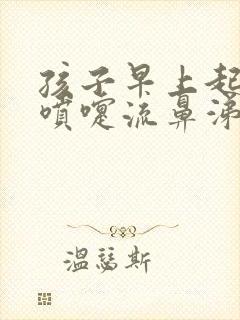 孩子早上起
喷嚏流鼻涕
温瑟斯